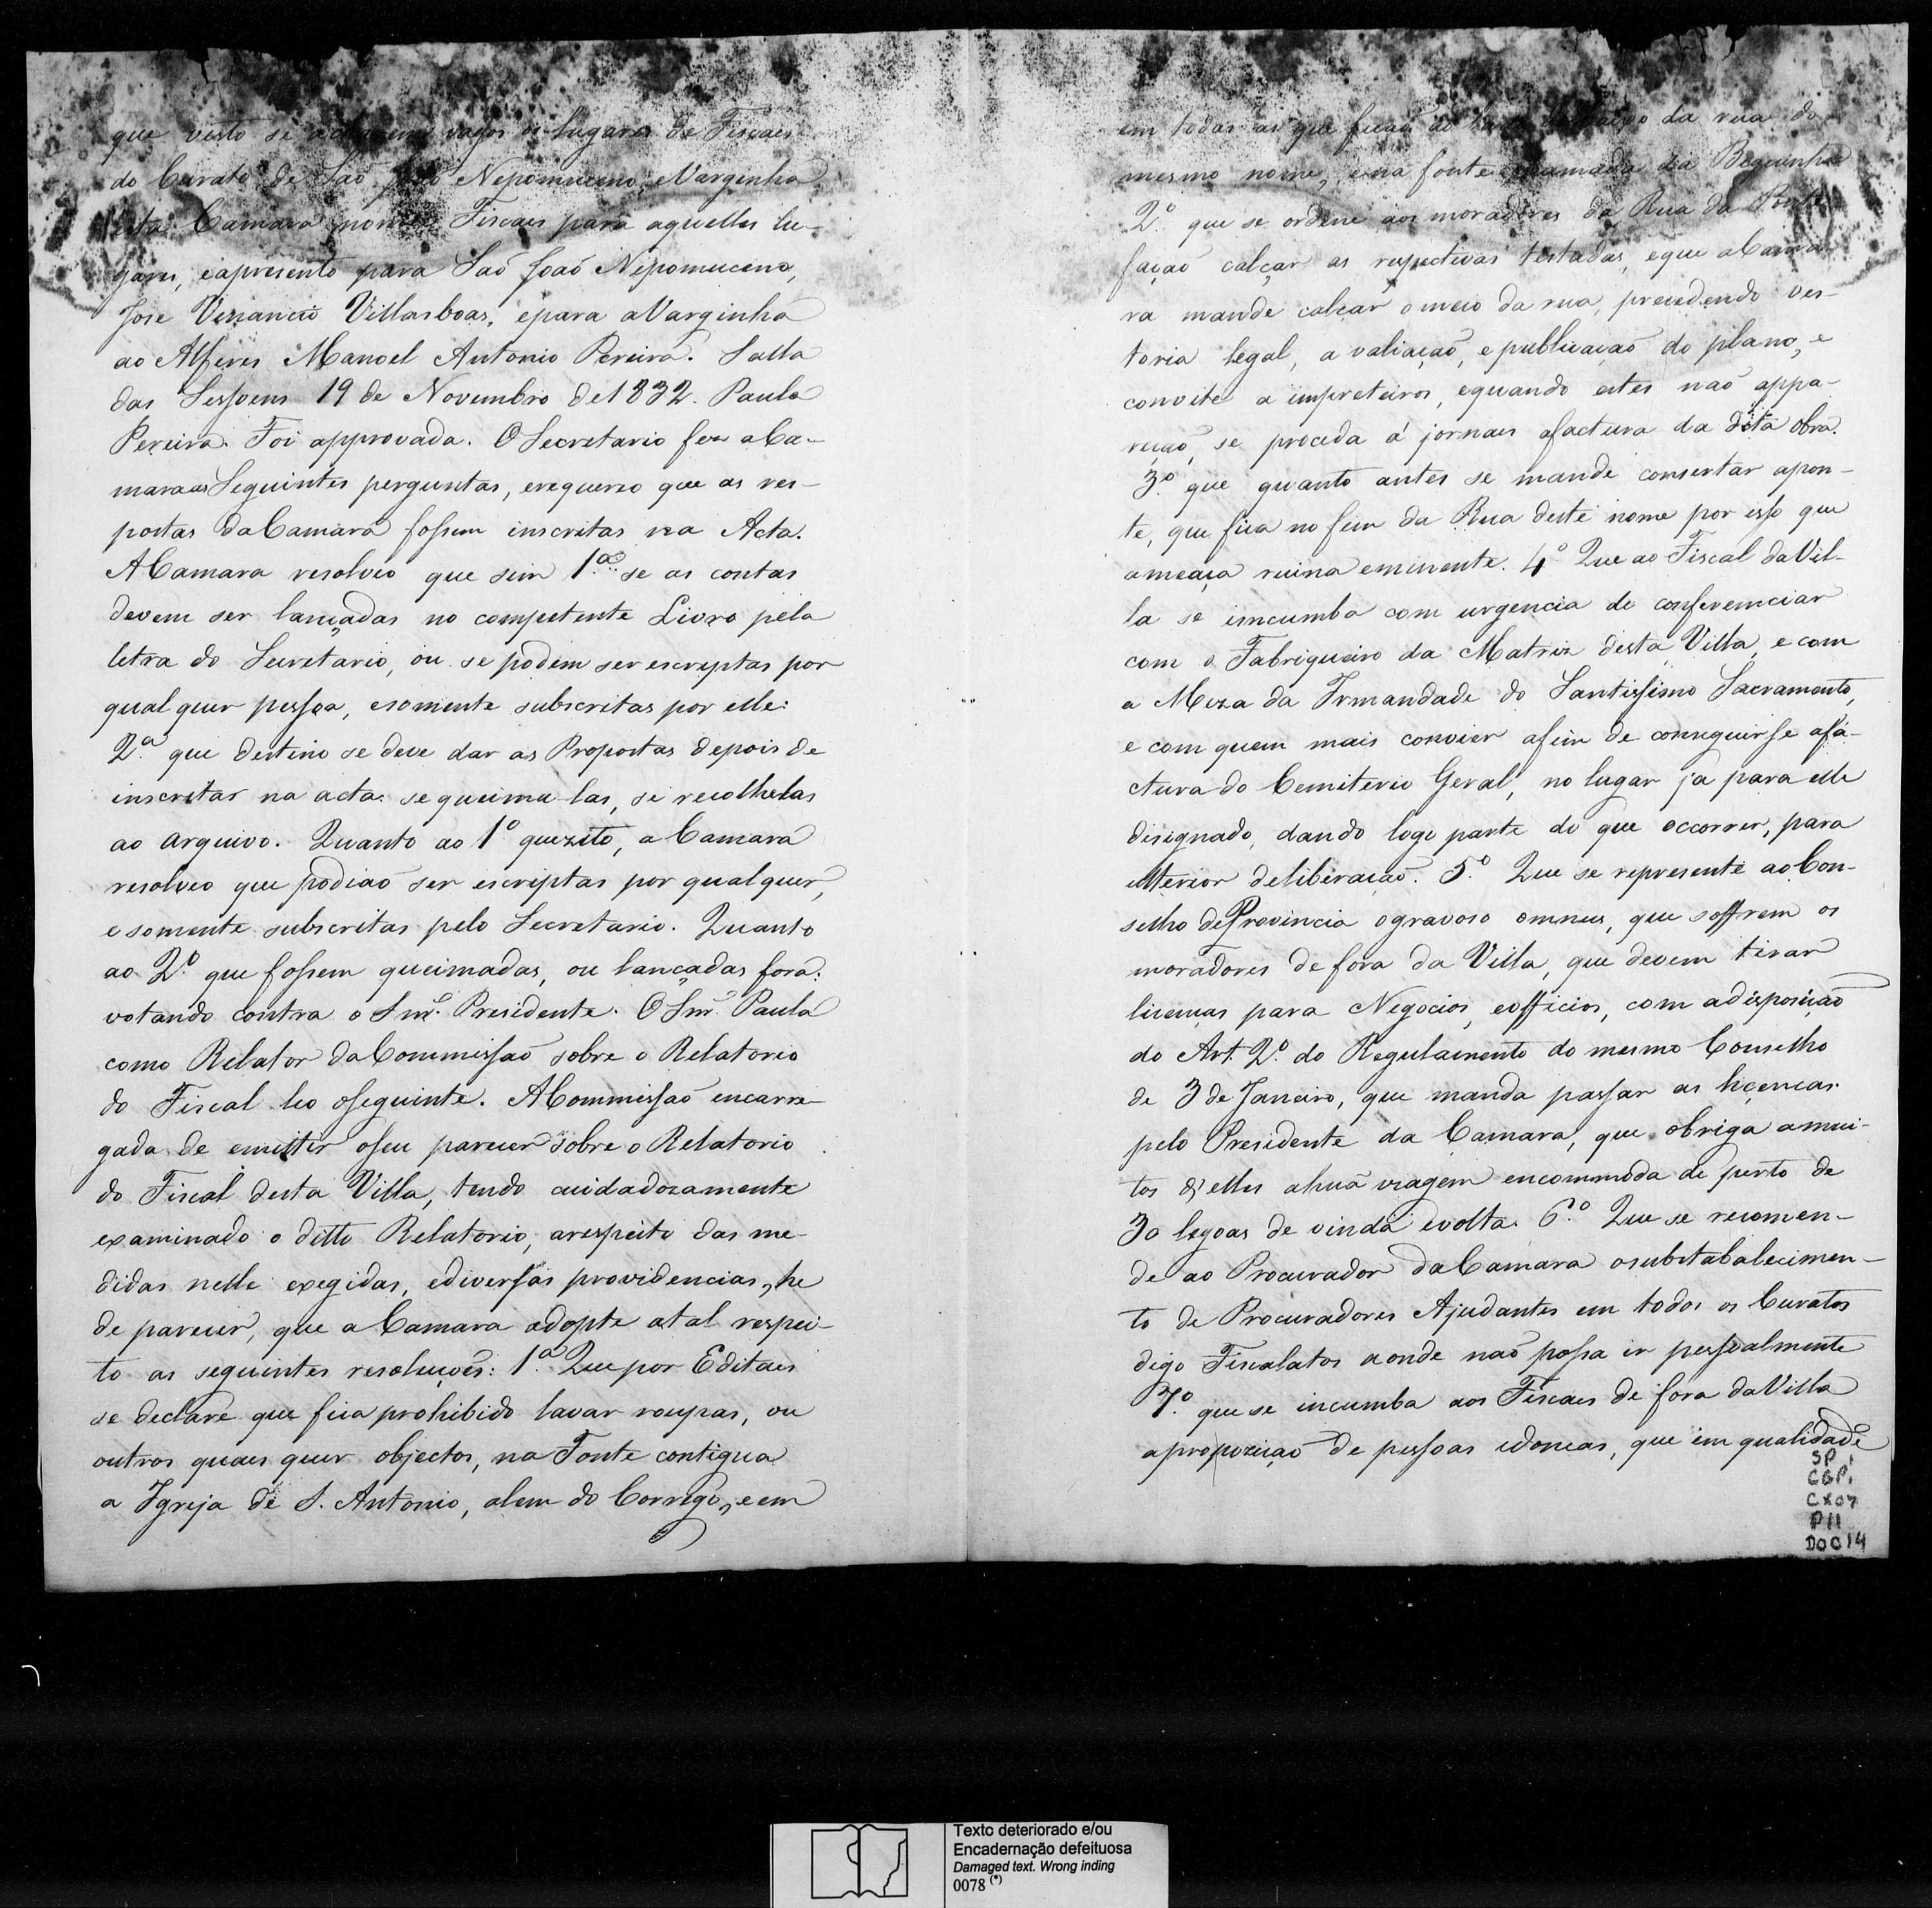 que visto se acharem vagos os lugares de Fiscaes
do Curato de Saõ João Nepomuceno, e Varginha
esta Camara nomee Fiscaes para aquelles lu-
gares, e apresento para Saõ Joaõ Nepomuceno,
Jose Venancio Villasboas, epara aVarginha
ao Alferes Manoel Antonio Pereira. Salla
das Sessoens 19 de Novembro de 1832. Paula
Pereira. Foi approvada. O Secretario fez aCa-
mara as Seguintes perguntas, erequereo que as res-
postas daCamara fossem inscritas na Acta.
ACamara resolveo que sim 1.ª se as contas
devem ser lançadas no competente Livro pela
letra do Secretario, ou se podem ser escriptas por
qual quer pessoa, esomente subscritas por elle:
2.ª que destino se deve dar as Propostas depois de
inscritas na acta: se queima-las, se recolhelas
ao arquivo. Quanto ao 1º quezito, a Camara
resolveo que podiaõ ser escriptas por qualquer,
e somente subscritas pelo Secretario. Quanto
ao 2.º que fossem queimadas, ou lançadas fora:
votando contra o Snr. Presidente. O Snr. Paula
como Relator daCommissaõ sobre o Relatorio
do Fiscal leo oseguinte. ACommissaõ encarre-
gada de emittir oseu parecer sobre o Relatorio
do Fiscal desta Villa, tendo cuidadosamente
examinado o ditto Relatorio, arespeito das me-
didas nelle exegidas, ediversas providencias, he
de parecer, que a Camara adopte atal respei-
to as seguintes resoluçoẽs: 1.ª Que por Editaes
se declare que fica prohibido lavar roupas, ou
outros quaes quer objectos, na Fonte contigua
a Igreja de S. Antonio, alem do Corrego, e em
em todas as que ficaõ ao da rua do
mesmo nome, e na fonte chamada da Bequinha
2.º que se ordene aos moradores da Rua da Ponte
façaõ calçar as respectivas testadas, eque aCama-
ra mande calçar omeio da rua, precedendo ves-
toria legal, a valiaçaõ, e publicaçaõ do plano, e
convite a impreteiros, equando estes naõ appa-
reçaõ, se proceda á jornaes afactura da dita obra.
3.º que quanto antes se mande consertar apon-
te, que fica no fim da Rua deste nome por isso que
ameaça ruina eminente. 4.º Que ao Fiscal daVil-
la se imcumba com urgencia de conferenciar
com o Fabriqueiro da Matriz desta Villa, e com
a Meza da Irmandade do Santissimo Sacramento,
e com quem mais convier afim de conseguirse afa-
ctura do Cemiterio Geral, no lugar ja para elle
designado, dando logo parte do que occorrer, para
ulterior deliberaçaõ. 5.º Que se represente ao Con-
selho deProvincia ogravoso omnus, que soffrem os
moradores de fora da Villa, que devem tirar
licenças para Negocios, eofficios, com adisposiçaõ
do Art. 2.º do Regulamento do mesmo Conselho
de 3 de Janeiro, que manda passar as licencas
pelo Presidente da Camara, que obriga amui-
tos d'elles ahuã viagem encommoda de perto de
30 legoas de vinda evolta. 6.º Que se recomen-
de ao Procurador daCamara osubstabalecimen-
to de Procuradores Ajudantes em todos os Curatos
digo Fiscalatos aonde naõ possa ir pessoalmente
7.º que se incumba aos Fiscaes de fora daVilla
apropoziçaõ de pessoas idoneas, que em qualidade
SP
CGP,
CX07
P11
DOC14
Texto deteriorado e/ou
Encadernação defeituosa
Damaged text. Wrong inding
0078 (*)